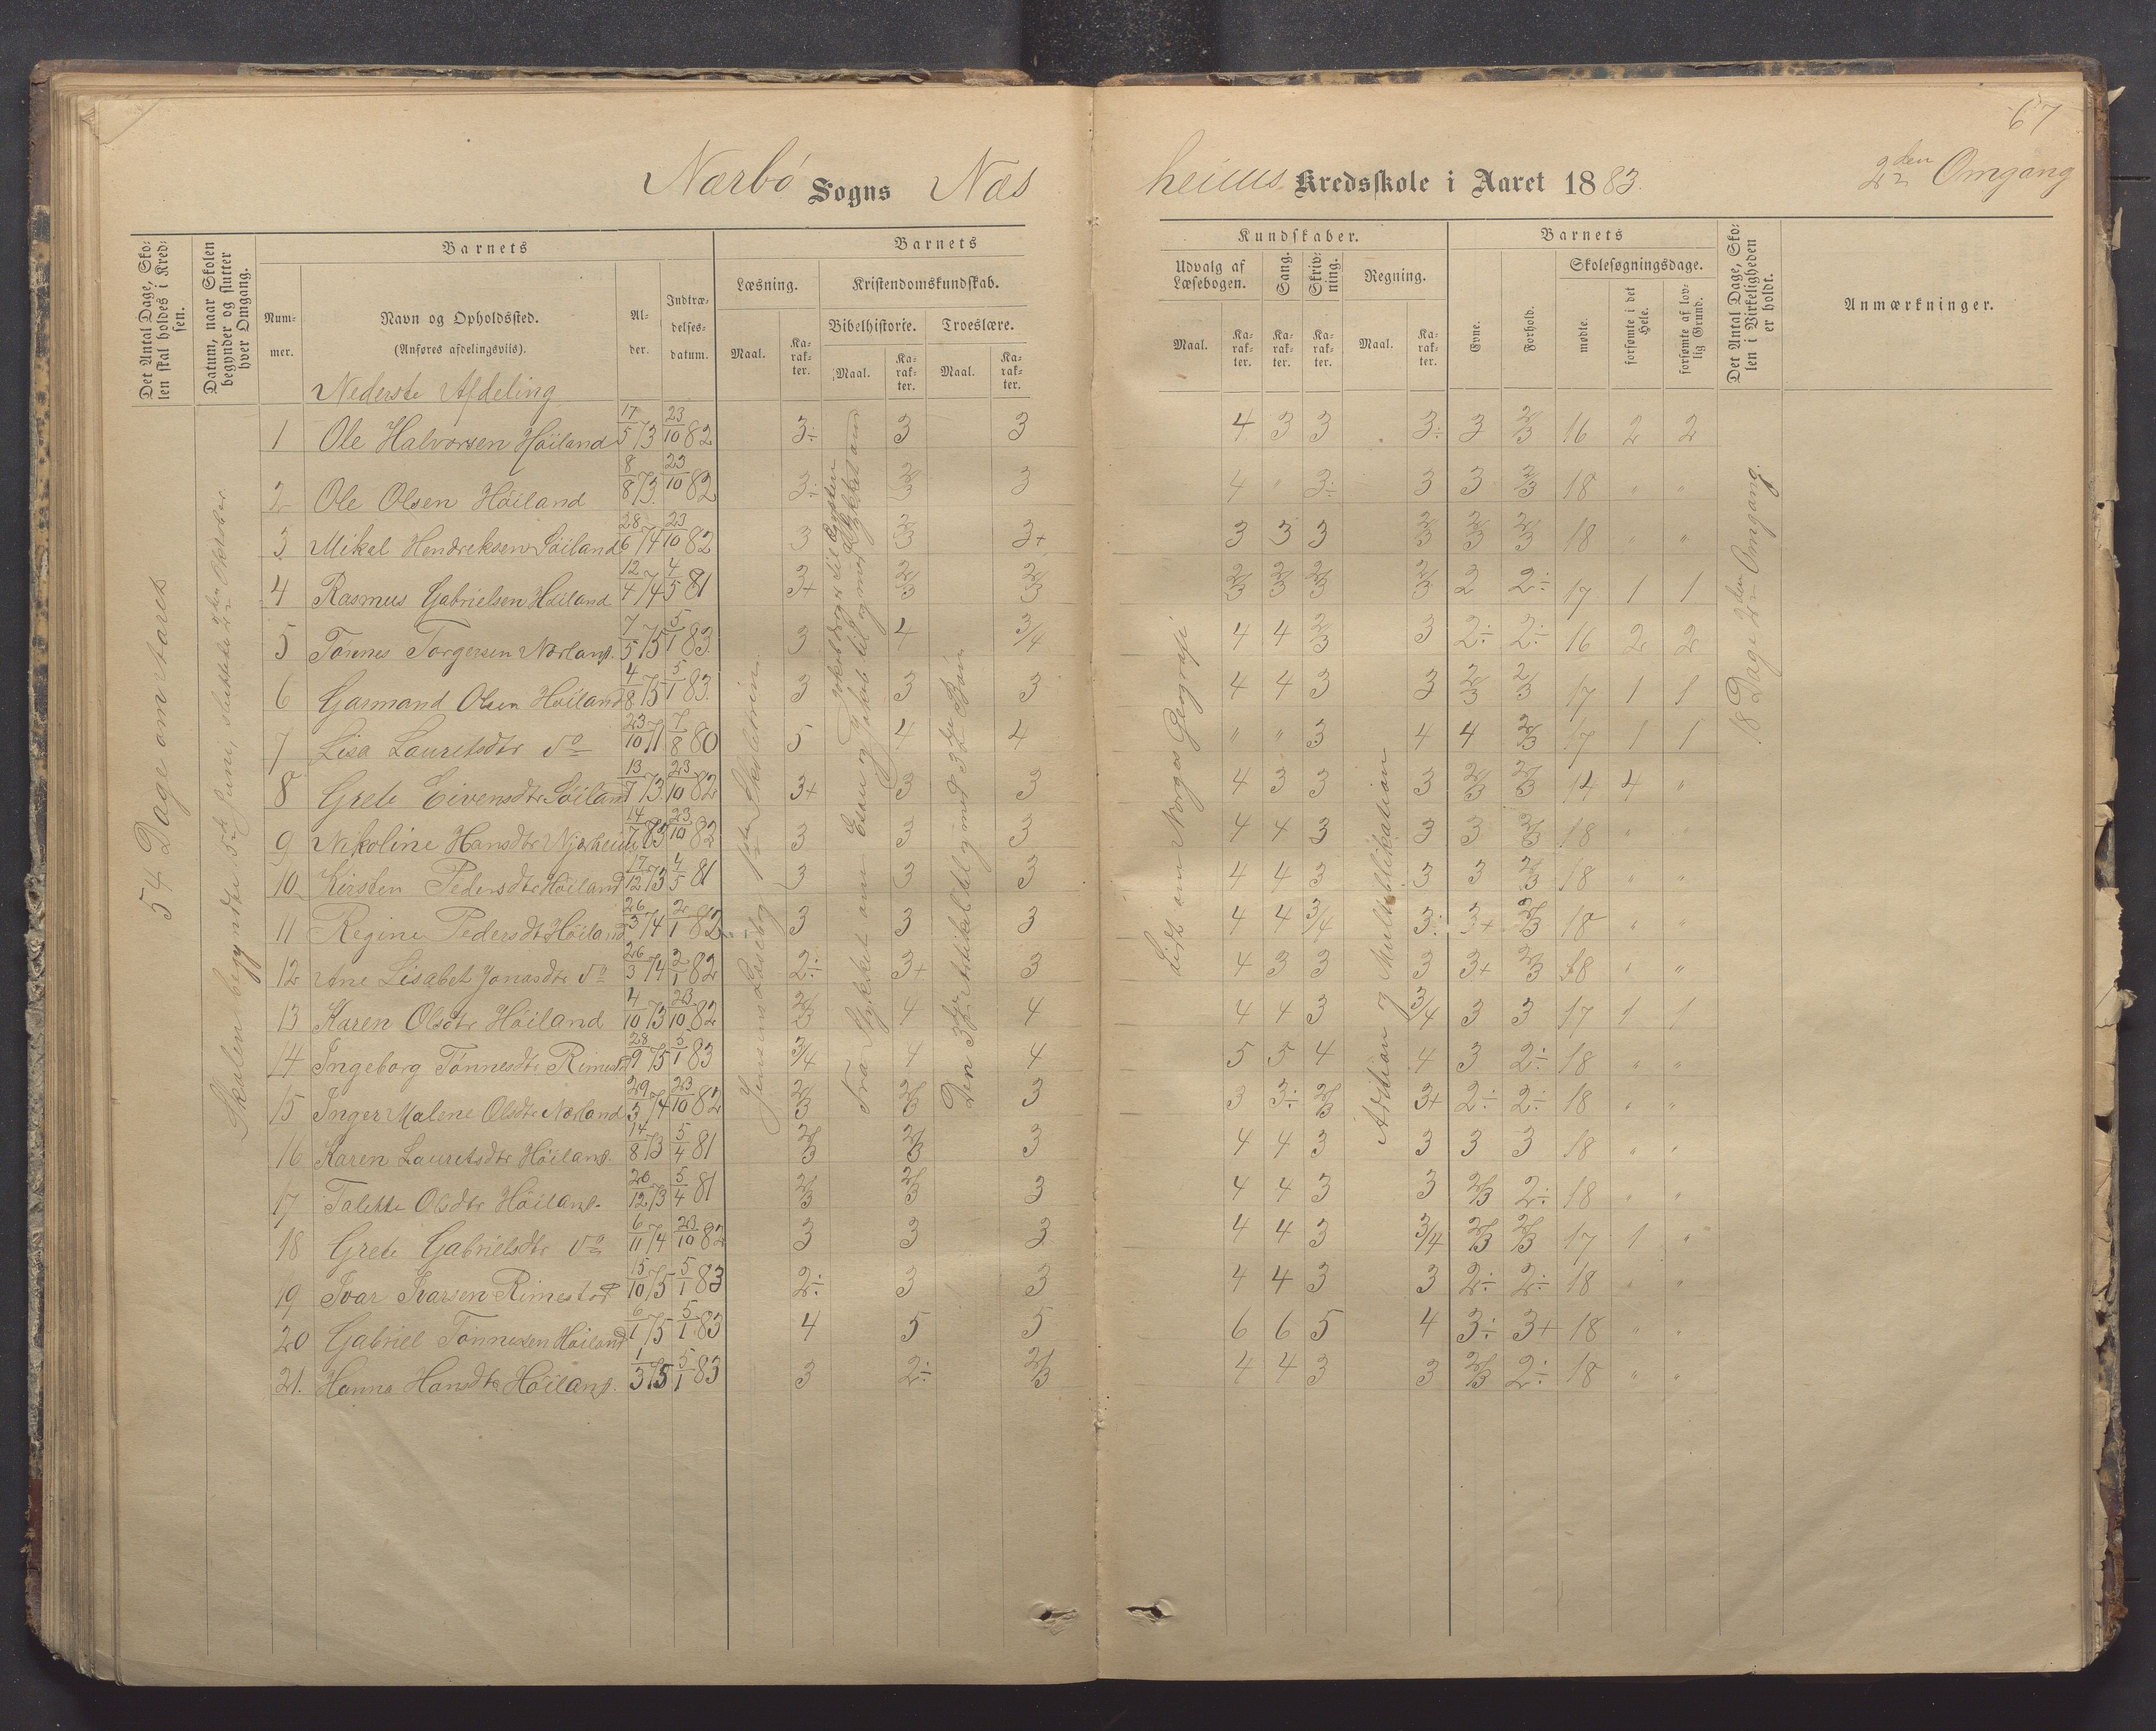 67
Nærbö Sogns Næsheims Kredsskole i Aaret 1883. 2den Omgang
Det Antal Dage, Skolen skal holdes i Kredsen.
Datum, naar Skolen begynder og slutter hver Omgang.
Barnets
Nummer.
Navn og Opholdssted.
(Anføres afdelingsviis).
Alder.
Indtrædelsesdatum.
Barnets Kundskaber.
Læsning.
Maal. Karakter.
Kristendomskundskab.
Bibelhistorie. Troeslære.
Maal. Karakter. Maal. Karakter.
Udvalg af Læsebogen.
Maal. Karakter.
Sang. Karakter.
Skrivning. Karakter.
Regning.
Maal. Karakter.
Barnets
Evne. Forhold.
Skolesøgningsdage.
mødte. forsømte i det Hele. forsømte af lovlig Grund.
Det Antal Dage, Skolen i Virkeligheden er holdt.
Anmærkninger.
54 Dage om Aaret
Skolen begyndte 5te Juni, sluttede Oktober.
Jensens Læsebog
Fra Stykket om Esau og Jakob til og med Stykket om
Den 3die Artikel til og med 3die Bön
Lidt om Norges Geografi
Adition og Multiplikation
18 Dage 2den Omgang.
Nederste Afdeling
1 Ole Halvorsen Höiland 17/5 73 23/10 82 3÷ 3 3 4 3 3 3÷ 3 2/3 16 2 2
2 Ole Olsen Höiland 8/8 73 23/10 82 3÷ 2/3 3 4 " 3÷ 3 3 2/3 18 " "
3 Mikal Hendreksen Söiland 28/6 74 23/10 82 3 2/3 3+ 3 3 3 2/3 2/3 2/3 18 " "
4 Rasmus Gabrielsen Höiland 12/4 74 4/5 81 3+ 2/3 2/3 2/3 2/3 2/3 2/3 2 2÷ 17 1 1
5 Tönnes Torgersen Nærland. 7/5 75 5/1 83. 3 4 3/4 4 4 2/3 3 2÷ 2÷ 16 2 2
6 Garmand Olsen Höiland 4/8 75 5/1 83. 3 3 3 4 4 3 3 2/3 2/3 17 1 1
7 Lisa Lauritsdtr do 23/10 71 7/8 80 5 4 4 " " 3 4 4 2/3 17 1 1
8 Grete Eivensdtr Söiland 13/7 73 23/10 82 3+ 3 3 4 3 3 3 2/3 2/3 14 4 "
9 Nikoline Hansdtr 14/7 83 23/10 82 3 3 3 4 4 3 3 3 2/3 18 " "
10 Kirsten Pedersdtr Höiland 17/12 73 4/5 81 3 3 3 4 4 3 3 3 2/3 18 " "
11 Regine Pedersdt Höiland 26/3 74 2/1 82 3 3 3 4 4 3/4 3÷ 3+ 2/3 18 " "
12 Ane Lisabet Jonasdtr do 26/3 74 2/1 82 2÷ 3+ 3 4 3 3 3 3+ 2/3 18 " "
13 Karen Olsdtr Höiland 4/10 73 23/10 82 2/3 4 4 4 4 3 3/4 3 3 17 1 1
14 Ingeborg Tönnesdtr Rimestd 28/9 75 5/1 83 3/4 4 4 5 5 4 4 3 2÷ 18 " "
15 Inger Malene Olsdtr Nærland 29/3 74 23/10 82 2/3 2/3 3 3 3÷ 2/3 3+ 2÷ 2÷ 18 " "
16 Karen Lauritsdtr Höiland. 14/8 73 5/4 81 2/3 2/3 3 4 4 3 3 3 3 18 " "
17 Talette Olsdtr Höiland. 20/12 73 5/4 81 2/3 2/3 3 4 4 3 3 2/3 2÷ 18 " "
18 Grete Gabrielsdtr do 6/11 74 23/10 82 3 3 3 4 4 3 3/4 2/3 2/3 17 1 "
19 Ivar Ivarsen Rimestad 15/10 75 5/1 83 2÷ 3 3 4 4 3 3 2÷ 2÷ 18 " "
20 Gabriel Tönnesen Höiland 6/1 75 5/1 83 4 5 5 6 6 5 4 3÷ 3+ 18 " "
21. Hanna Hansdtr. Höiland. 1/3 75 5/1 83 3 2÷ 2/3 4 4 3 3 2/3 2÷ 18 " "